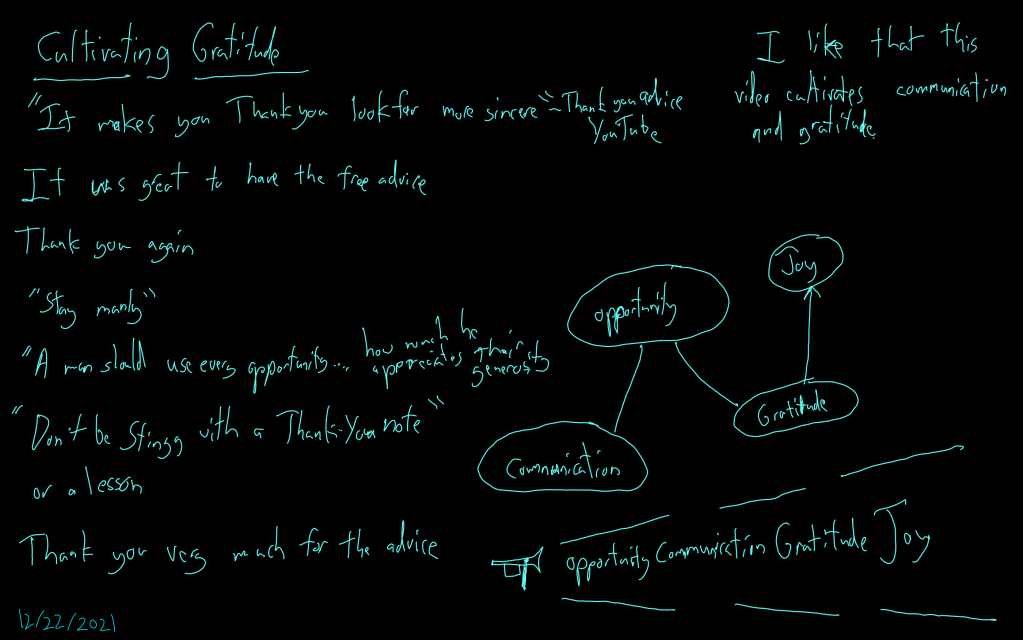 Cultivating Gratitude
"It makes you Thank you look far more sincere" - Thank you advice
YouTube
It was great to have the free advice
Thank you again
"Stay manly"
"A man should use every opportunity... how much he
appreciates their
generosity
"Don't be Stingy with a Thank-You note"
or a lesson
Thank you very much for the advice
12/22/2021
I like that this
video cultivates communication
and gratitude
Joy
opportunity
Gratitude
Communication
opportunity Communication Gratitude Joy